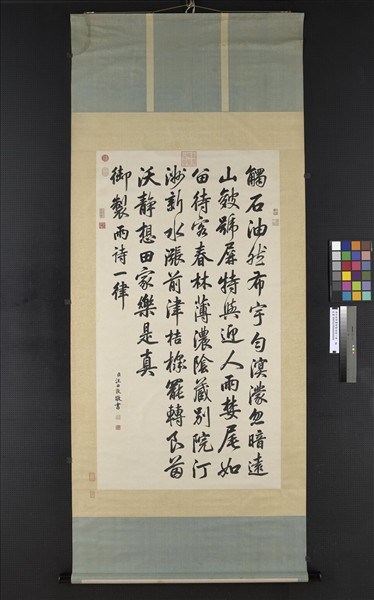 觸石油然布宇勻溟濛忽暗遠
山皴號屏特與迎人雨婪尾如
留待客春林薄濃陰藏別院汀
沙新水漲前津桔橰罷轉良苗
沃靜想田家樂是真
御製雨詩一律
臣汪由敦敬書